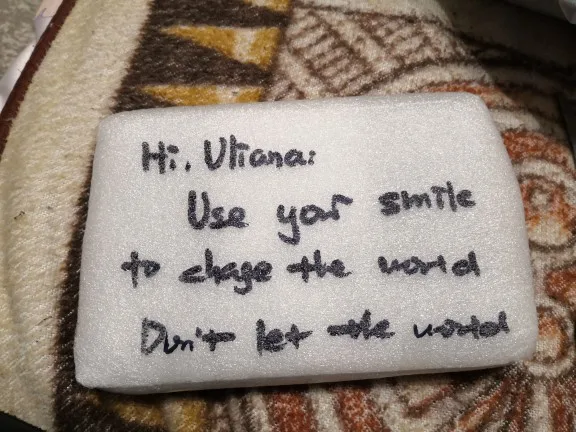 Hi. Uliana:
Use your smile
to chage the world
Don't let the world